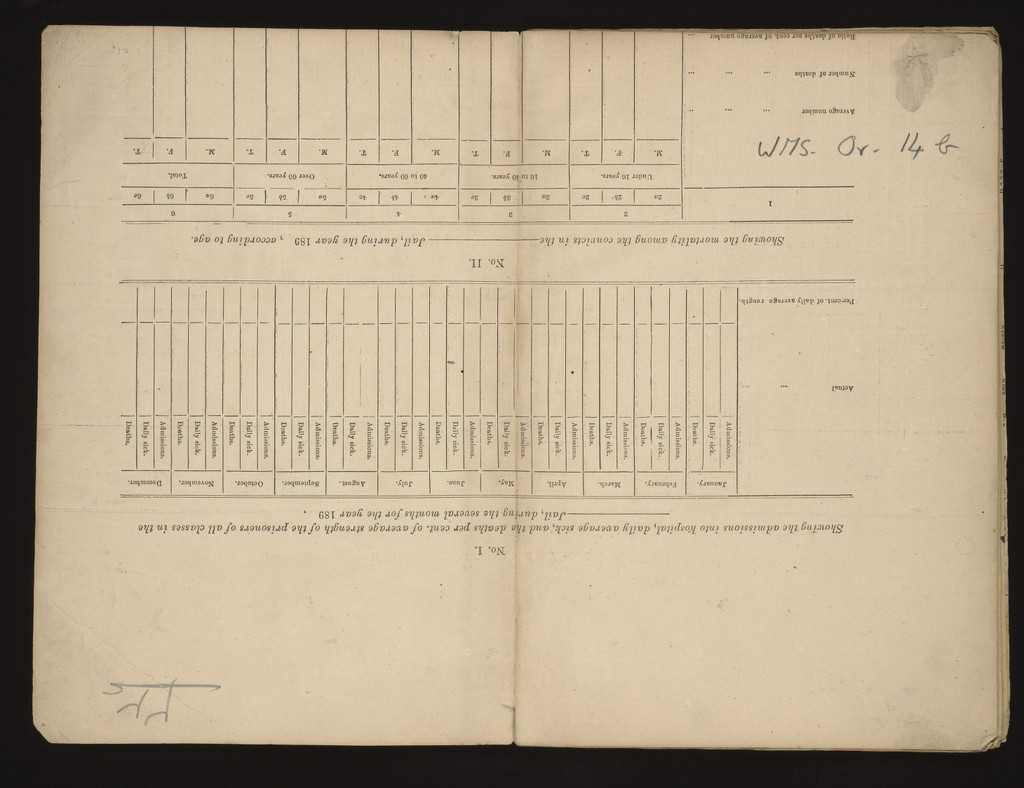 WMS. Or. 14 b
No. I.
Showing the admissions into hospital, daily average sick, and the deaths per cent. of average strength of the prisoners of all classes in the
Jail, during the several months for the year 189 .
January. February. March. April. May. June. July. August. September. October. November. December.
Admissions. Daily sick. Deaths. Admissions. Daily sick. Deaths. Admissions. Daily sick. Deaths. Admissions. Daily sick. Deaths. Admissions. Daily sick. Deaths. Admissions. Daily sick. Deaths. Admissions. Daily sick. Deaths. Admissions. Daily sick. Deaths. Admissions. Daily sick. Deaths. Admissions. Daily sick. Deaths. Admissions. Daily sick. Deaths. Admissions. Daily sick. Deaths.
Actual ... ...
Per cent. of daily average
No. II.
Showing the mortality among the convicts in the Jail, during the year 189 , according to age.
1 2 3 4 5 6
2a 2b 2c 3a 3b 3c 4a 4b 4c 5a 5b 5c 6a 6b 6c
Under 16 years. 16 to 40 years. 40 to 60 years. Over 60 years. Total.
M. F. T. M. F. T. M. F. T. M. F. T. M. F. T.
Average number ... ... ...
Number of deaths ... ... ...
Ratio of deaths per cent. of average number ...